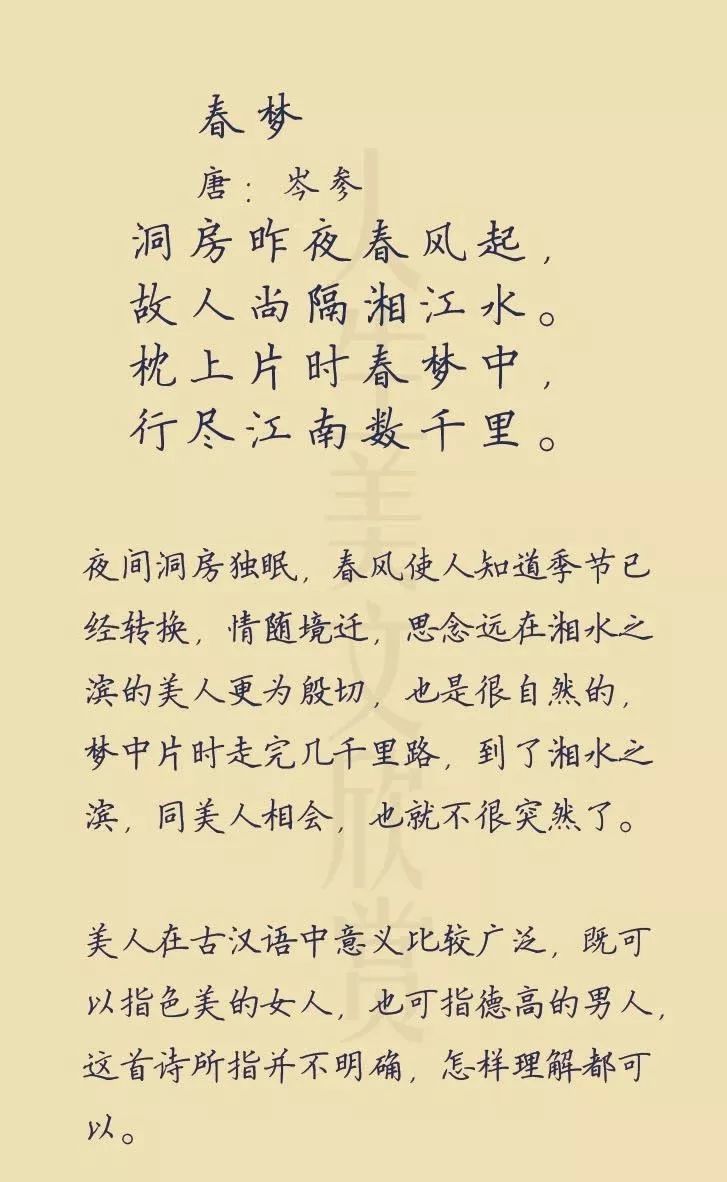 春梦
唐：岑参
洞房昨夜春风起，
故人尚隔湘江水。
枕上片时春梦中，
行尽江南数千里。
夜间洞房独眠，春风使人知道季节已
经转换，情随境迁，思念远在湘水之
滨的美人更为殷切，也是很自然的，
梦中片时走完几千里路，到了湘水之
滨，同美人相会，也就不很突然了。
美人在古汉语中意义比较广泛，既可
以指色美的女人，也可指德高的男人，
这首诗所指并不明确，怎样理解都可
以。
人生美文欣赏